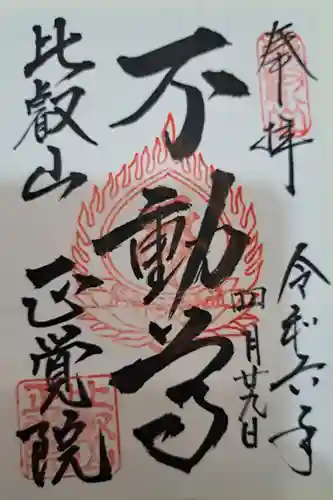 奉拝
令和六年
四月廿九日
不動尊
比叡山
正覚院